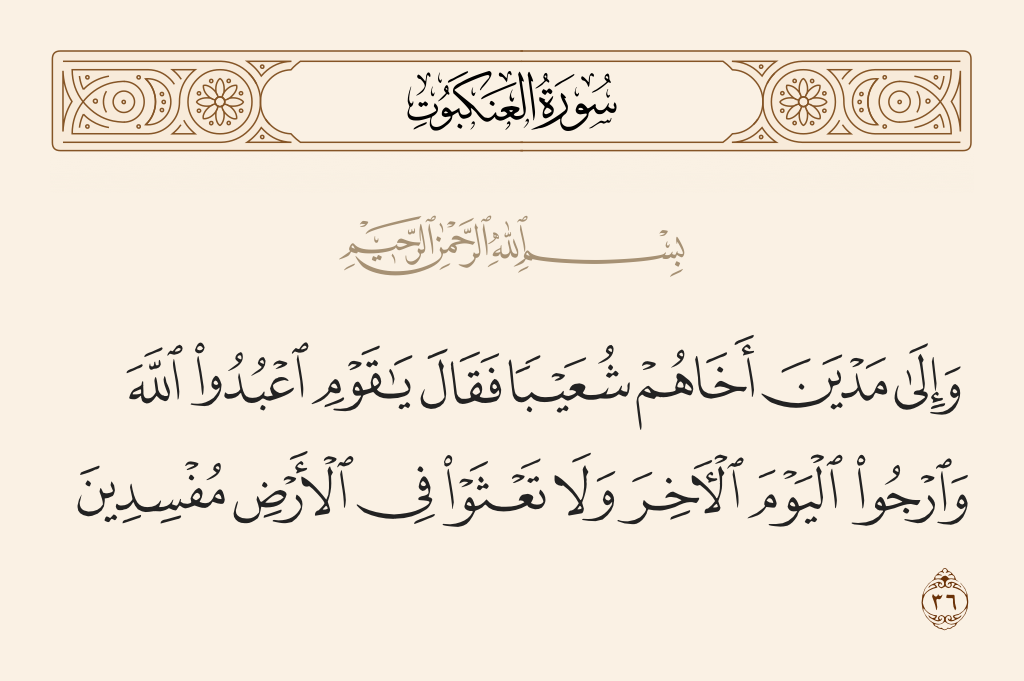 سُورَةُ العَنكَبُوتِ
بِسْمِ ٱللَّهِ ٱلرَّحْمَٰنِ ٱلرَّحِيمِ
وَإِلَىٰ مَدْيَنَ أَخَاهُمْ شُعَيْبًا فَقَالَ يَـٰقَوْمِ ٱعْبُدُوا۟ ٱللَّهَ
وَٱرْجُوا۟ ٱلْيَوْمَ ٱلْـَٔاخِرَ وَلَا تَعْثَوْا۟ فِى ٱلْأَرْضِ مُفْسِدِينَ
٣٦